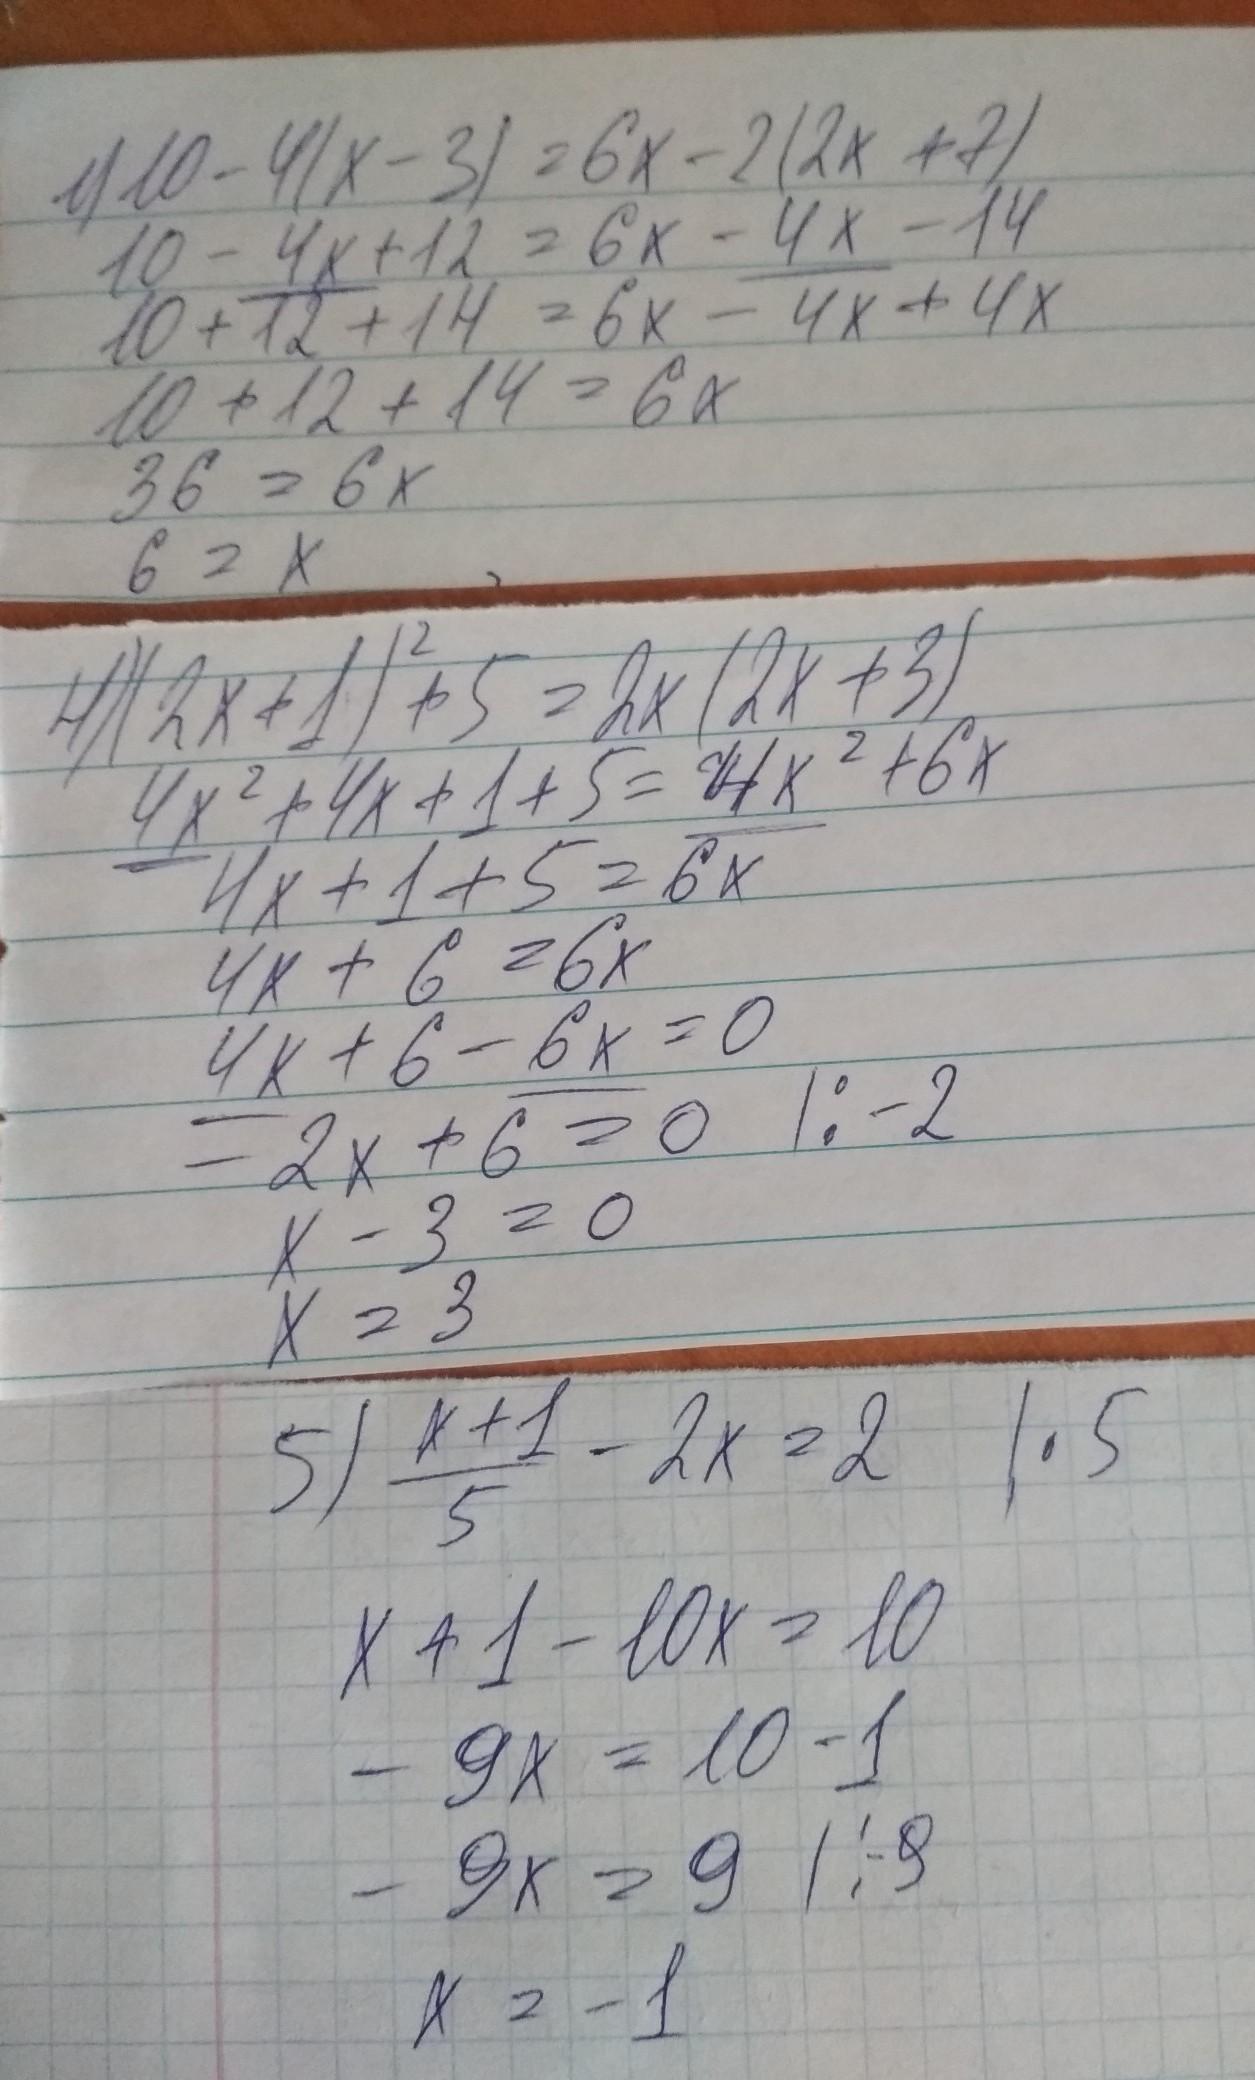 1) 10 - 4(x - 3) = 6x - 2(2x + 7)
10 - 4x + 12 = 6x - 4x - 14
10 + 12 + 14 = 6x - 4x + 4x
10 + 12 + 14 = 6x
36 = 6x
6 = x
4) (2x + 1)² + 5 = 2x(2x + 3)
4x² + 4x + 1 + 5 = 4x² + 6x
4x + 1 + 5 = 6x
4x + 6 = 6x
4x + 6 - 6x = 0
- 2x + 6 = 0 |: -2
x - 3 = 0
x = 3
5) (x + 1)/5 - 2x = 2 | · 5
x + 1 - 10x = 10
- 9x = 10 - 1
- 9x = 9 |: -9
x = -1